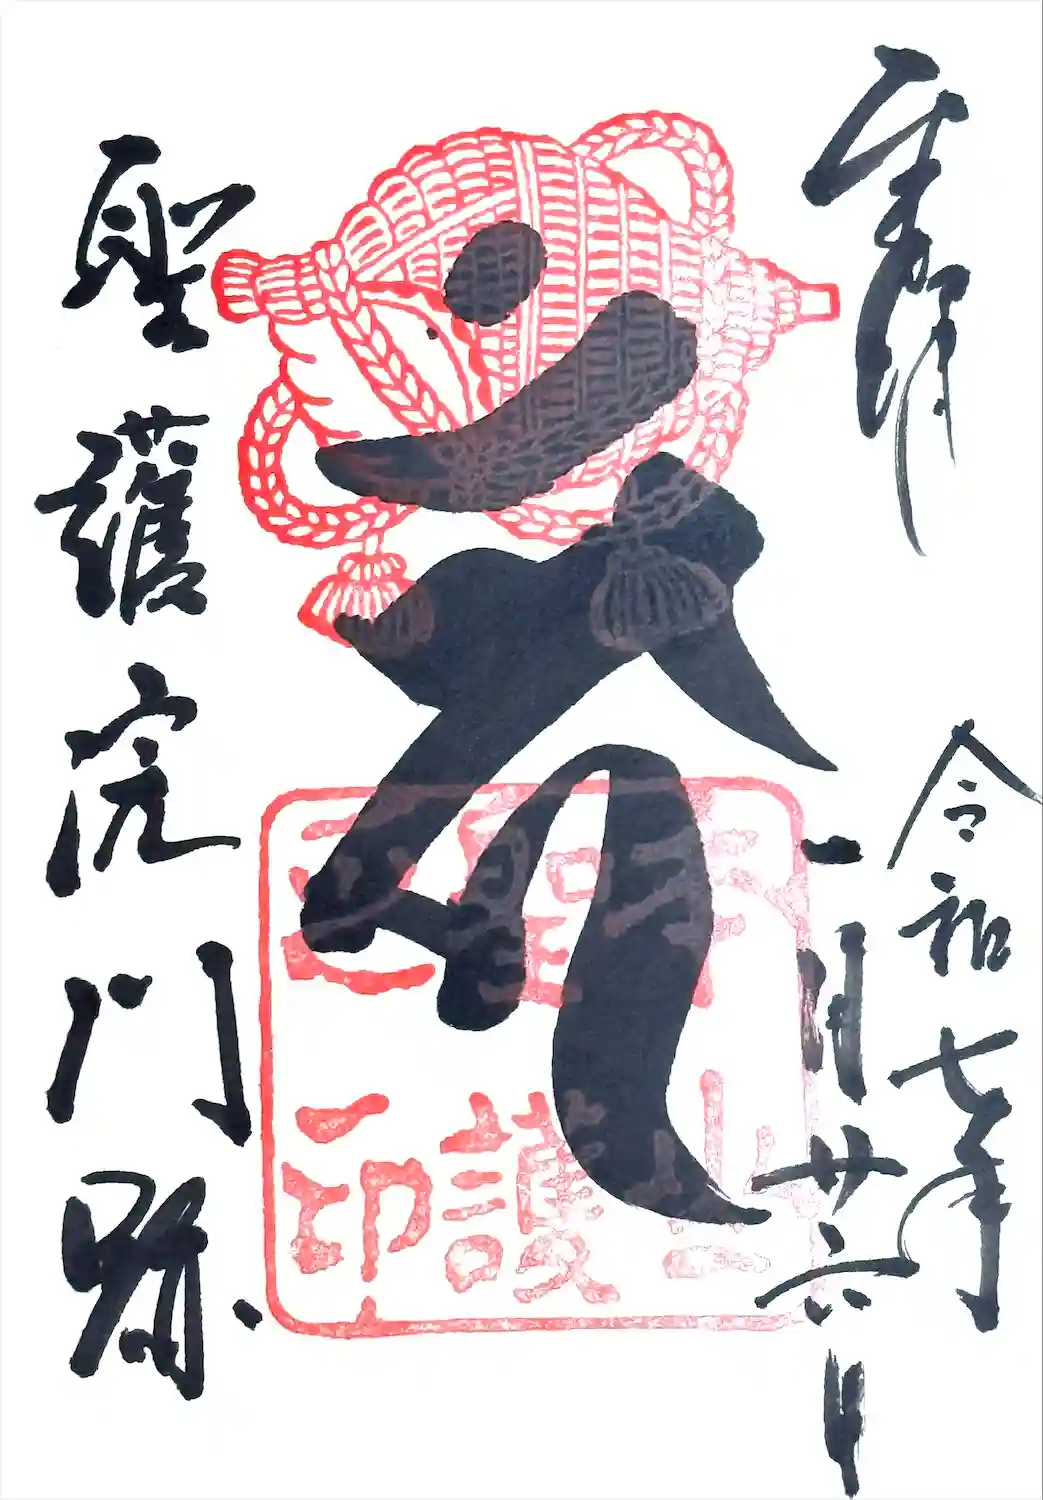 奉拝
令和七年
一月廿六日
聖護院門跡
聖護
印